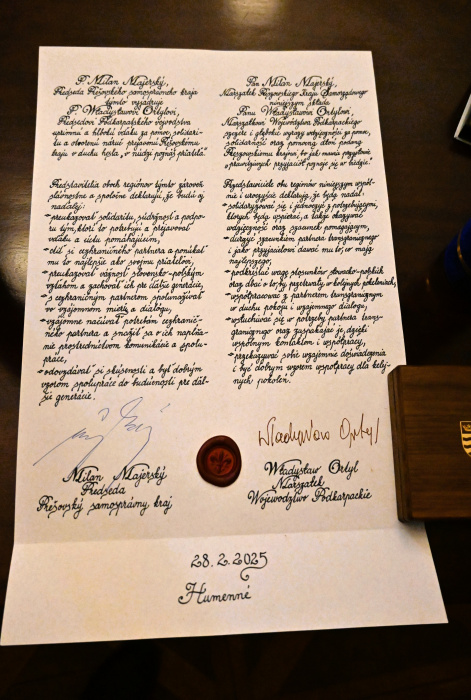 P. Milan Majerský,
Predseda Prešovského samosprávneho kraja
týmto vyjadruje
P. Władysławovi Ortylovi,
Predsedovi Podkarpatského vojvodstva
úprimnú a hlbokú vďaku za pomoc, solidari-
tu a otvorenú náruč prejavenú Prešovskému
kraju v duchu hesla „v núdzi poznáš priateľa“.
Predstavitelia oboch regiónov týmto zároveň
slávnostne a spoločne deklarujú, že budú aj
naďalej:
preukazovať solidaritu, súdržnosť a podpo-
ru tým, ktorí to potrebujú a prejavovať
vďaku a úctu pomáhajúcim,
ctiť si cezhraničného partnera a ponúkať
mu to najlepšie ako svojmu priateľovi,
preukazovať vážnosť slovensko-poľským
vzťahom a zachovať ich pre ďalšie generácie,
s cezhraničným partnerom spolunažívať
vo vzájomnom mieri a dialógu,
vzájomne načúvať potrebám cezhranič-
ného partnera a snažiť sa o ich naplne-
nie prostredníctvom komunikácie a spolu-
práce,
odovzdávať si skúsenosti a byť dobrým
vzorom spolupráce do budúcnosti pre ďal-
šie generácie.
Milan Majerský
Predseda
Prešovský samosprávny kraj
Pan Milan Majerský,
Marszałek Preszowskiego Kraju Samorządowego
niniejszym składa
Panu Władysławowi Ortylowi,
Marszałkowi Województwa Podkarpackiego
szczere i głębokie wyrazy wdzięczności za pomoc,
solidarność oraz pomocną dłoń podaną
Preszowskiemu krajowi, bo jak mówi przysłowie
„prawdziwych przyjaciół poznaje się w biedzie“.
Przedstawiciele obu regionów niniejszym wspól-
nie i uroczyście deklarują, że będą nadal:
solidaryzować się i jednoczyć z potrzebującymi,
których będą wspierać, a także okazywać
wdzięczność oraz szacunek pomagającym,
darzyć szacunkiem partnera transgranicznego
i jako przyjacielowi dawać mu to, co mają
najlepszego,
podkreślać wagę stosunków słowacko-polskich
oraz dbać o to, by przetrwały w kolejnych pokoleniach,
współpracować z partnerem transgranicznym
w duchu pokoju i wzajemnego dialogu,
wsłuchiwać się w potrzeby partnera trans-
granicznego oraz zaspakajać je dzięki
wspólnym kontaktom i współpracy,
przekazywać sobie wzajemnie doświadczenia
i być dobrym wzorem współpracy dla kolej-
nych pokoleń.
Władysław Ortyl
Władysław Ortyl
Marszałek
Województwo Podkarpackie
28. 2. 2025
Humenné